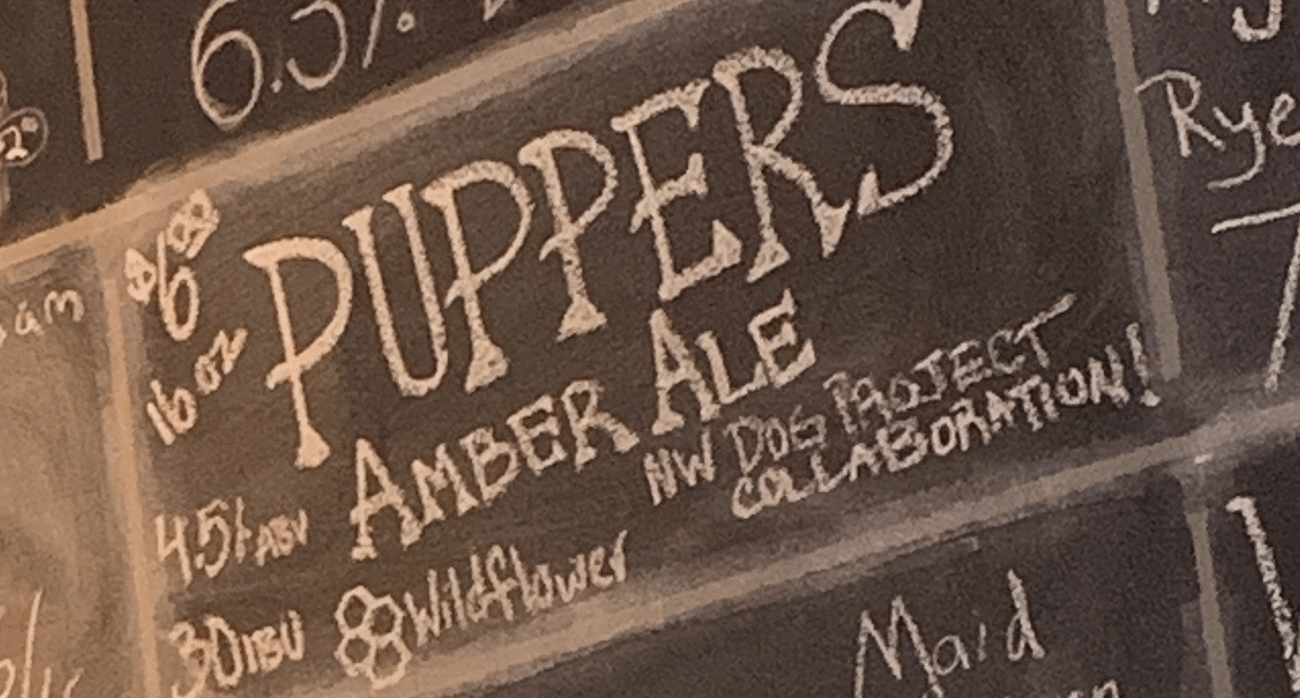 6.5%
2°
am
Rye
$6
16 oz
PUPPERS
AMBER ALE
NW DOG PROJECT
COLLABORATION!
4.5% ABV
30 IBU
Wildflower
Maid